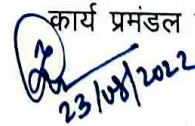 कार्य प्रमंडल
23/08/2022